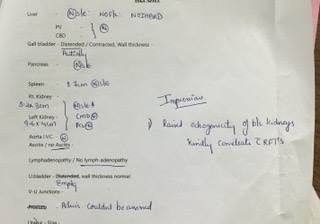 Liver - Ⓝ size: No SOL: NO IHBRD
PV -
CBD - Ⓝ
Gall bladder - Distended / Contracted, Wall thickness -
Partially
Pancreas - Ⓝ size
Spleen - 8.7cm Ⓝ size
Rt. Kidney -
Ⓝ size &
Left Kidney - CMD Ⓝ
9.4 x 4cm PCS Ⓝ
Aorta I.V.C. - Ⓝ
Ascitis / no Ascitis -
Lymphadenopathy / No lymph-adenopathy
U.bladder - Distended, wall thickness normal
Empty
V-U Junctions -
Adnexa couldn't be assessed
Impression
Raised echogenicity of b/l kidneys
Kindly correlate c̄ RFT's